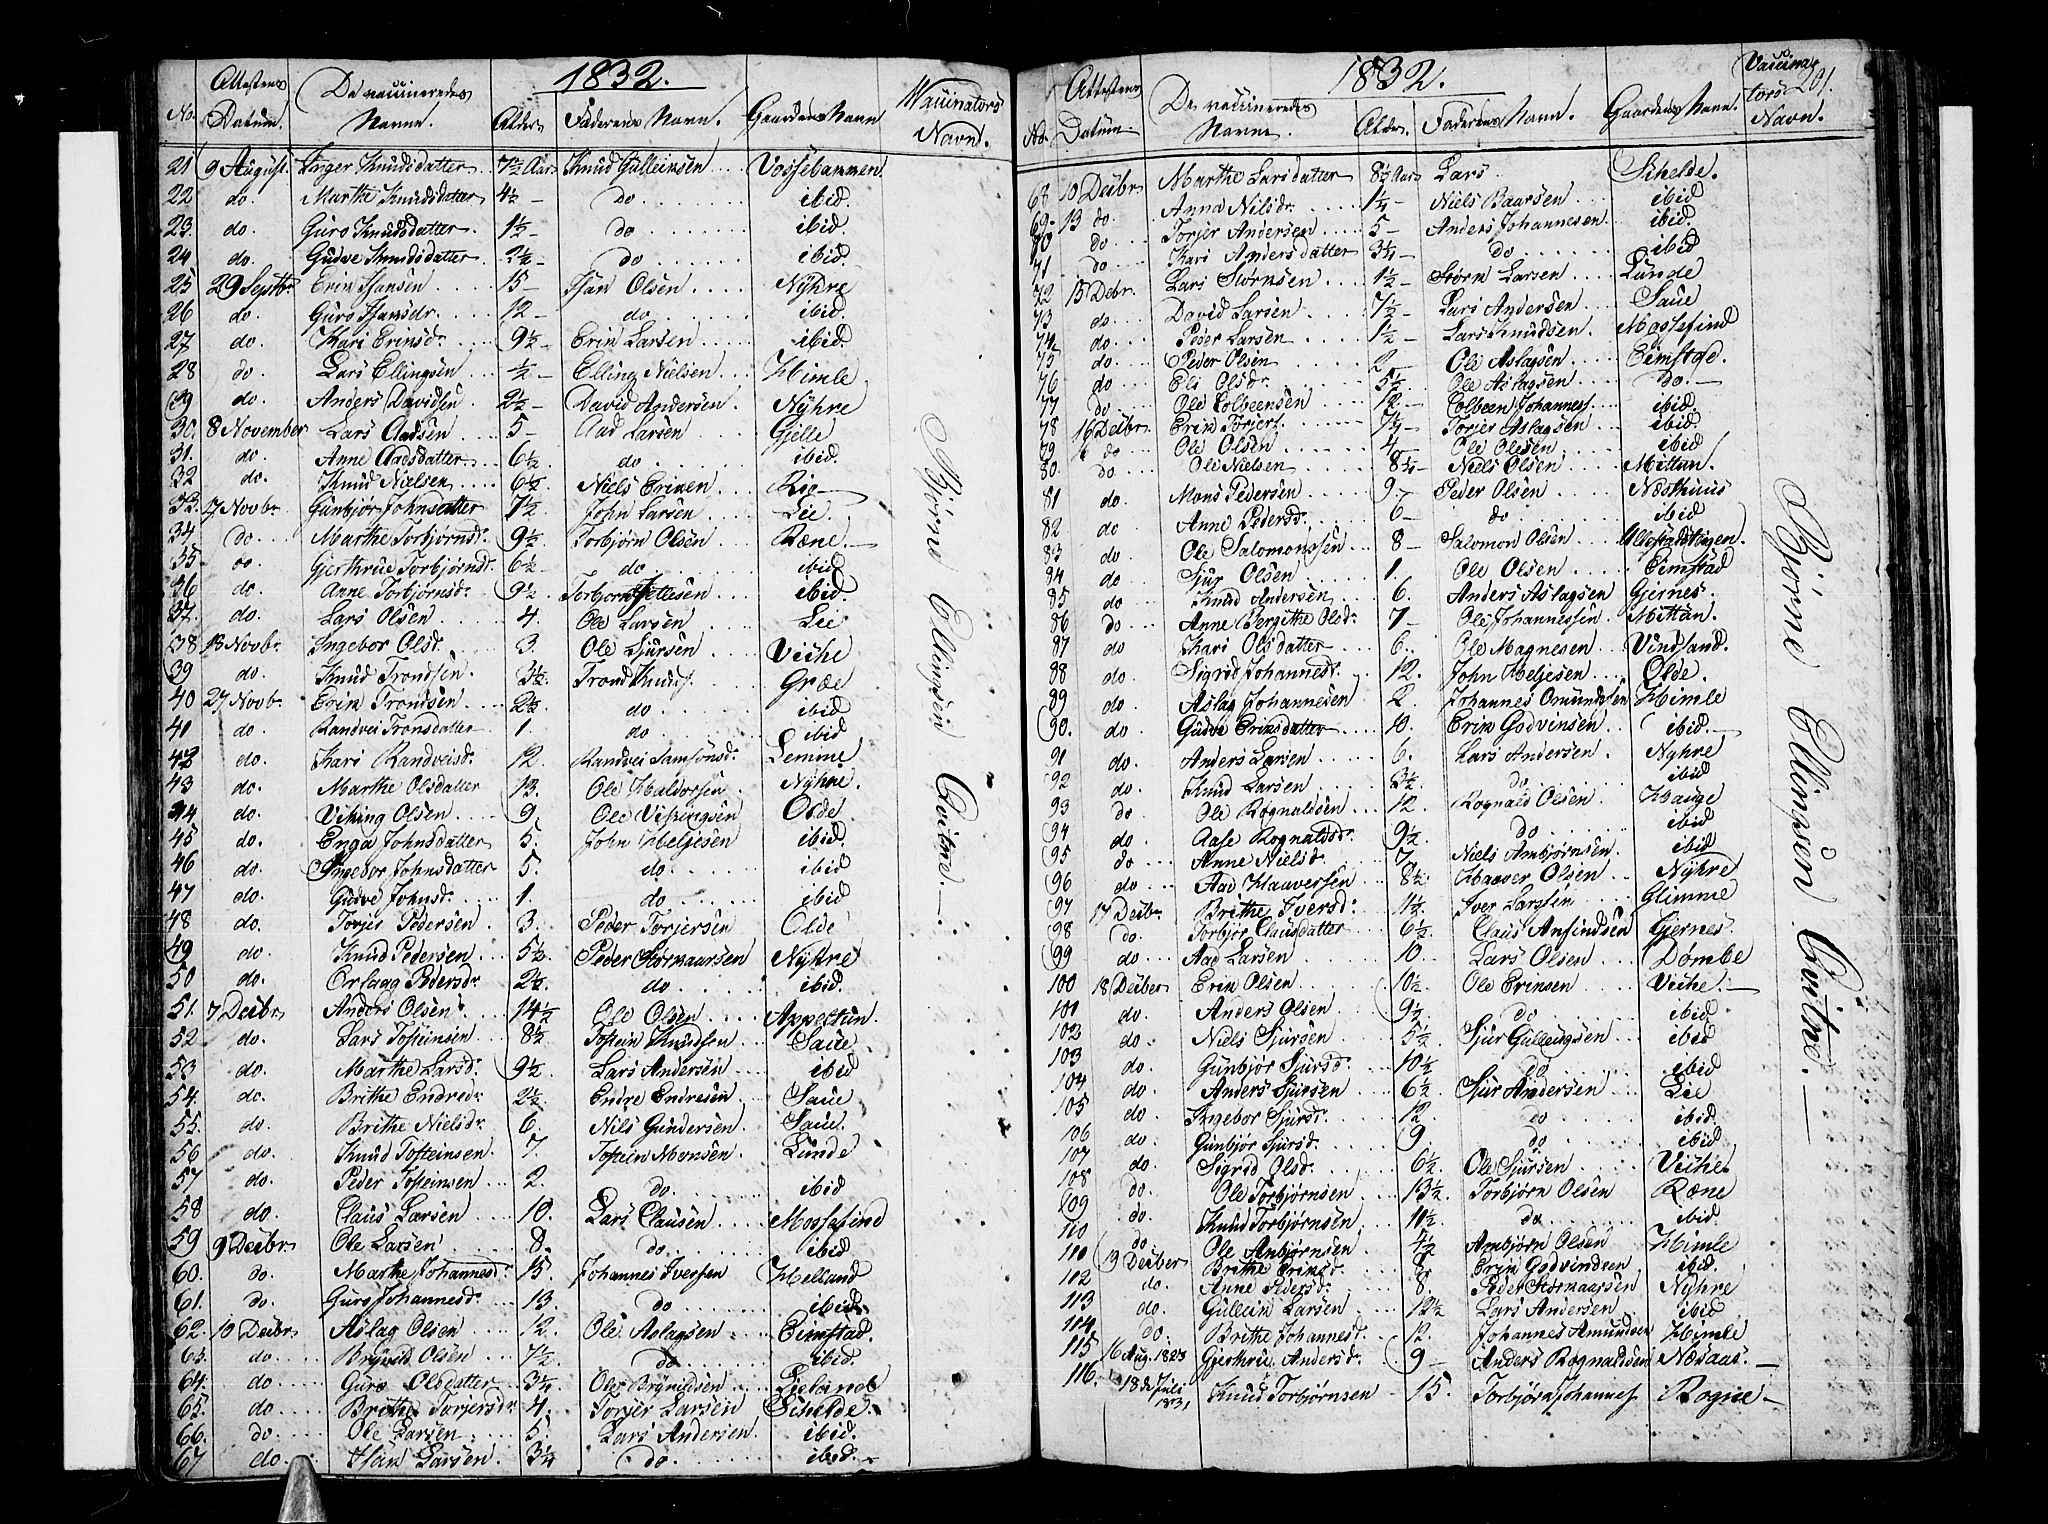 1832.
No. Attestens Datum. De vaccineredes Navne. Alder Faderens Navn. Gaardens Navn Waccinators Navn.
21 9 August Inger Knudsdatter 7½ Aar Knud Gulleinsen Vossebammen
22 do. Marthe Knudsdatter 4½ - do ibid.
23. do. Guro Knudsdatter. 1½ - do ibid.
24 do. Gudve Knudsdatter do ibid.
25 29 Septbr Hansen 15 - Olsen Nÿhre
26 do. Guro 12 - do. ibid.
27 do. Kari Eriksd. 9½ - Erik Larsen ibid.
28 do Lars Ellingsen ½ - Elling Nielsen Himle
29 do. Anders Davidsen 2½ - David Andersen. Nÿhre
30. 8 November Lars Aadsen 5 - Aad Larsen Gjelle
31. do. Anne Aadsdatter 6½ do ibid.
32 do. Knud Nielsen 6½ Niels Eriksen
33. 17 Novbr Gunbjør Johnsdatter 7½ John Larsen Lie.
34 do Marthe Torbjørnsd. 9½ Torbjørn Olsen Ræne.
35. do. Gjerthrue Torbjørnsd. 6½ do ibid
36 do. Anne Torbjørnsd. 9½ ibid.
37. do. Lars Olsen 4. Ole Larsen Lie
38 Novbr Ingebor Olsd. 3. Ole Sjursen
39 do. Knud Trondsen 3½ Trond Knuds. Græe
40 27 Novbr Erik Trondsen 2½ do ibid
41 do. Randvei Tronsdatter 1. do. ibid
42 do. Kari Randveisd. 12. Randvei Samsonsd. Lemme
43 do. Marthe Olsdatter 13. Ole Haldorsen Nÿhre.
44 do. Viking Olsen 9. Ole Vikingsen Olde
45 do. Enga Johnsdatter 5. John Heljesen ibid.
46 do. Ingebor Johnsdatter 5. do. ibid
47 do. Gudve Johnsd. 1. do ibid
48 do. Torjer Pedersen 3. Peder Torjersen Olde
49 do. Knud Pedersen 5½ Peder Stormaarsen Nÿhre
50 do. Pedersd. 2½ do ibid.
51. 7 Decbr Anders Olsen 14½ Ole Olsen Appeltun.
52 do. Lars Tosteinsen 8½ Tostein Knudsen Saue
53 do. Marthe Larsd. 9½ Lars Andersen ibid
54. do. Brithe Endred. 2½ Endre Endresen Saue
55. do. Brithe Nielsd. 6. Nils Gundersen Saue
56 do. Knud Tosteinsen. 7. Tostein Monsen Lunde
57 do. Peder Tosteinsen 2. do. ibid
58 do. Claus Larsen 10. Lars Clausen Mossefind
59 9 Decbr Ole Larsen 8. do. ibid
60. do. Marthe Johannesd. 15. Johannes Iversen Helland
61. do. Guro Johannesd. 13. do ibid.
62. 10 Decbr Aslag Olsen 12. Ole Aslagsen Eimstad.
63. do. Brÿnild Olsen 7½ do ibid.
64. do Guro Olsdatter 3¼ Ole Brÿnildsen
65. do Brithe Torjersd. 4. Torjer Larsen Schelde.
66. do Ole Larsen 5. Lars Andersen. ibid.
67 do. Larsen. 3¼ do. ibid.
Bjørne Ellingsen Qvitne.
201.
1832.
No. Attestens Datum. De vaccineredes Navne. Alder. Faderens Navn. Gaardens Navn. Vaccinators Navn.
68 10 Decbr Marthe Larsdatter 8½ Aar Lars Schelde.
69. 13 do. Anna Nilsd. 1¼ Niels Baarsen ibid
70 do Torjer Andersen 5 - Anders Johannesen ibid
71 do. Kari Andersdatter 3¼ - do ibid
72 15 Decbr. Lars Stormsen 1½ - Storm Larsen Lunde
73 do. David Larsen 7½ - Lars Andersen Saue
74 do. Peder Larsen 1½ - Lars Knudsen. Mossefind
75 do. Peder Olsen 2 - Ole Aslagsen Eimstad.
76 do Eli Olsd. 5½ Ole Aslagsen do.
77 do. Ole Colbeensen 12 - Colbeen Johannes. ibid.
78 16 Decbr. Erik Torjers. Torjer Aslagsen ibid.
79 do Ole Olsen 4 - Ole Olsen ibid
80 do Ole Nielsen Niels Olsen
81 do. Mons Pedersen 9. Peder Olsen Næsthuus
82 do Anne Pedersd. 6 - do ibid
83 do. Ole Salomonssen 8 - Salomon Olsen
84 do. Sjur Olsen 1. Ole Olsen Eimstad
85 do Knud Andersen 6. Anders Aslagsen Gjernes.
86 do. Anne Bergithe Olsd. 7 - Ole Johannessen
87 do Kari Olsdatter 6. Ole Magnesen
88 do. Sigrid Johannesd. 12. John Heljesen Olde.
89 do. Aslag Johannesen 2. Johannes Omundsen Himle
90. do. Gudve Eriksdatter 10. Erik Godvinsen ibid.
91 do. Anders Larsen 6. Lars Andersen. Nyhre
92 do. Knud Larsen 3½ do ibid
93 do Ole Rognaldsen 12. Rognald Olsen. Hauge
94 do. Aase Rognaldsd. 9½ do ibid
95 do Anne Nielsd. 7. Niels Ambjørnsen. ibid
96 do Aad Haaversen 8½ Haaver Olsen Nÿhre
97 17 Decbr. Brithe Iversd. 1½ Iver Larssen Glimme
98 do. Torbjør Clausdatter 6½ Claus Anfindsen Gjernes.
99 do. Aad Larsen 10 Lars Olsen Dømbe
100 18 Decber Erik Olsen 10½ Ole Eriksen
101 do. Anders Olsen 9½ do ibid.
102 do. Niels Sjursen 5½ Sjur Gullengsen ibid
103 do. Gunbjør Sjursd. 10½ do ibid
104 do. Anders Sjursen 6½ Sjur Andersen Lie
105 do. Ingebor Sjursd. 12. do ibid.
106 do. Gunbjør Sjursd. 9 do ibid
107 do. Sigrid Olsd. 6½ Ole Sjursen
108 do. Ole Torbjørnsen 13½ Torbjørn Olsen Ræne
109 do. Knud Torbjørnsen 11½ do ibid.
110 do Ole Anbjørnsen 4½ Ambjørn Olsen Himle
19 Decber Brithe Eriksd. 8. Erik Godvindsen ibid.
112 do. Anne Pedersd. 8. Peder Stormaarsen Nÿhre
113 do. Gullein Larsen 12½ Lars Andersen ibid
114 do. Brithe Johannesd. 12. Johannes Amundsen Himle
115 16 Aug. 1823 Gjerthrue Andersd. 9 - Anders Rognaldsen Næsaas.
116. 18de Juli 1831 Knud Torbjørnsen - 15. Torbjørn Johannes. Rogne
Bjørne Ellingsen Qvitne.